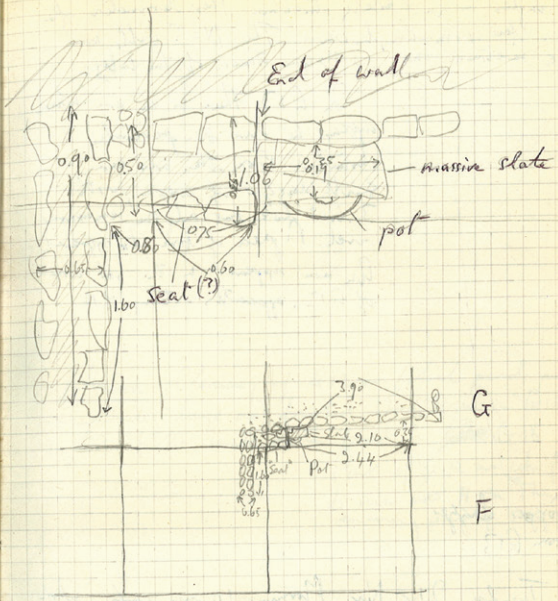 End of wall
0.90
0.50
1.06
0.19
massive slate
pot
0.80
0.75
0.60
0.65
Seat (?)
1.60
3.90
G
2.10
2.44
"Seat"
Pot
0.65
F